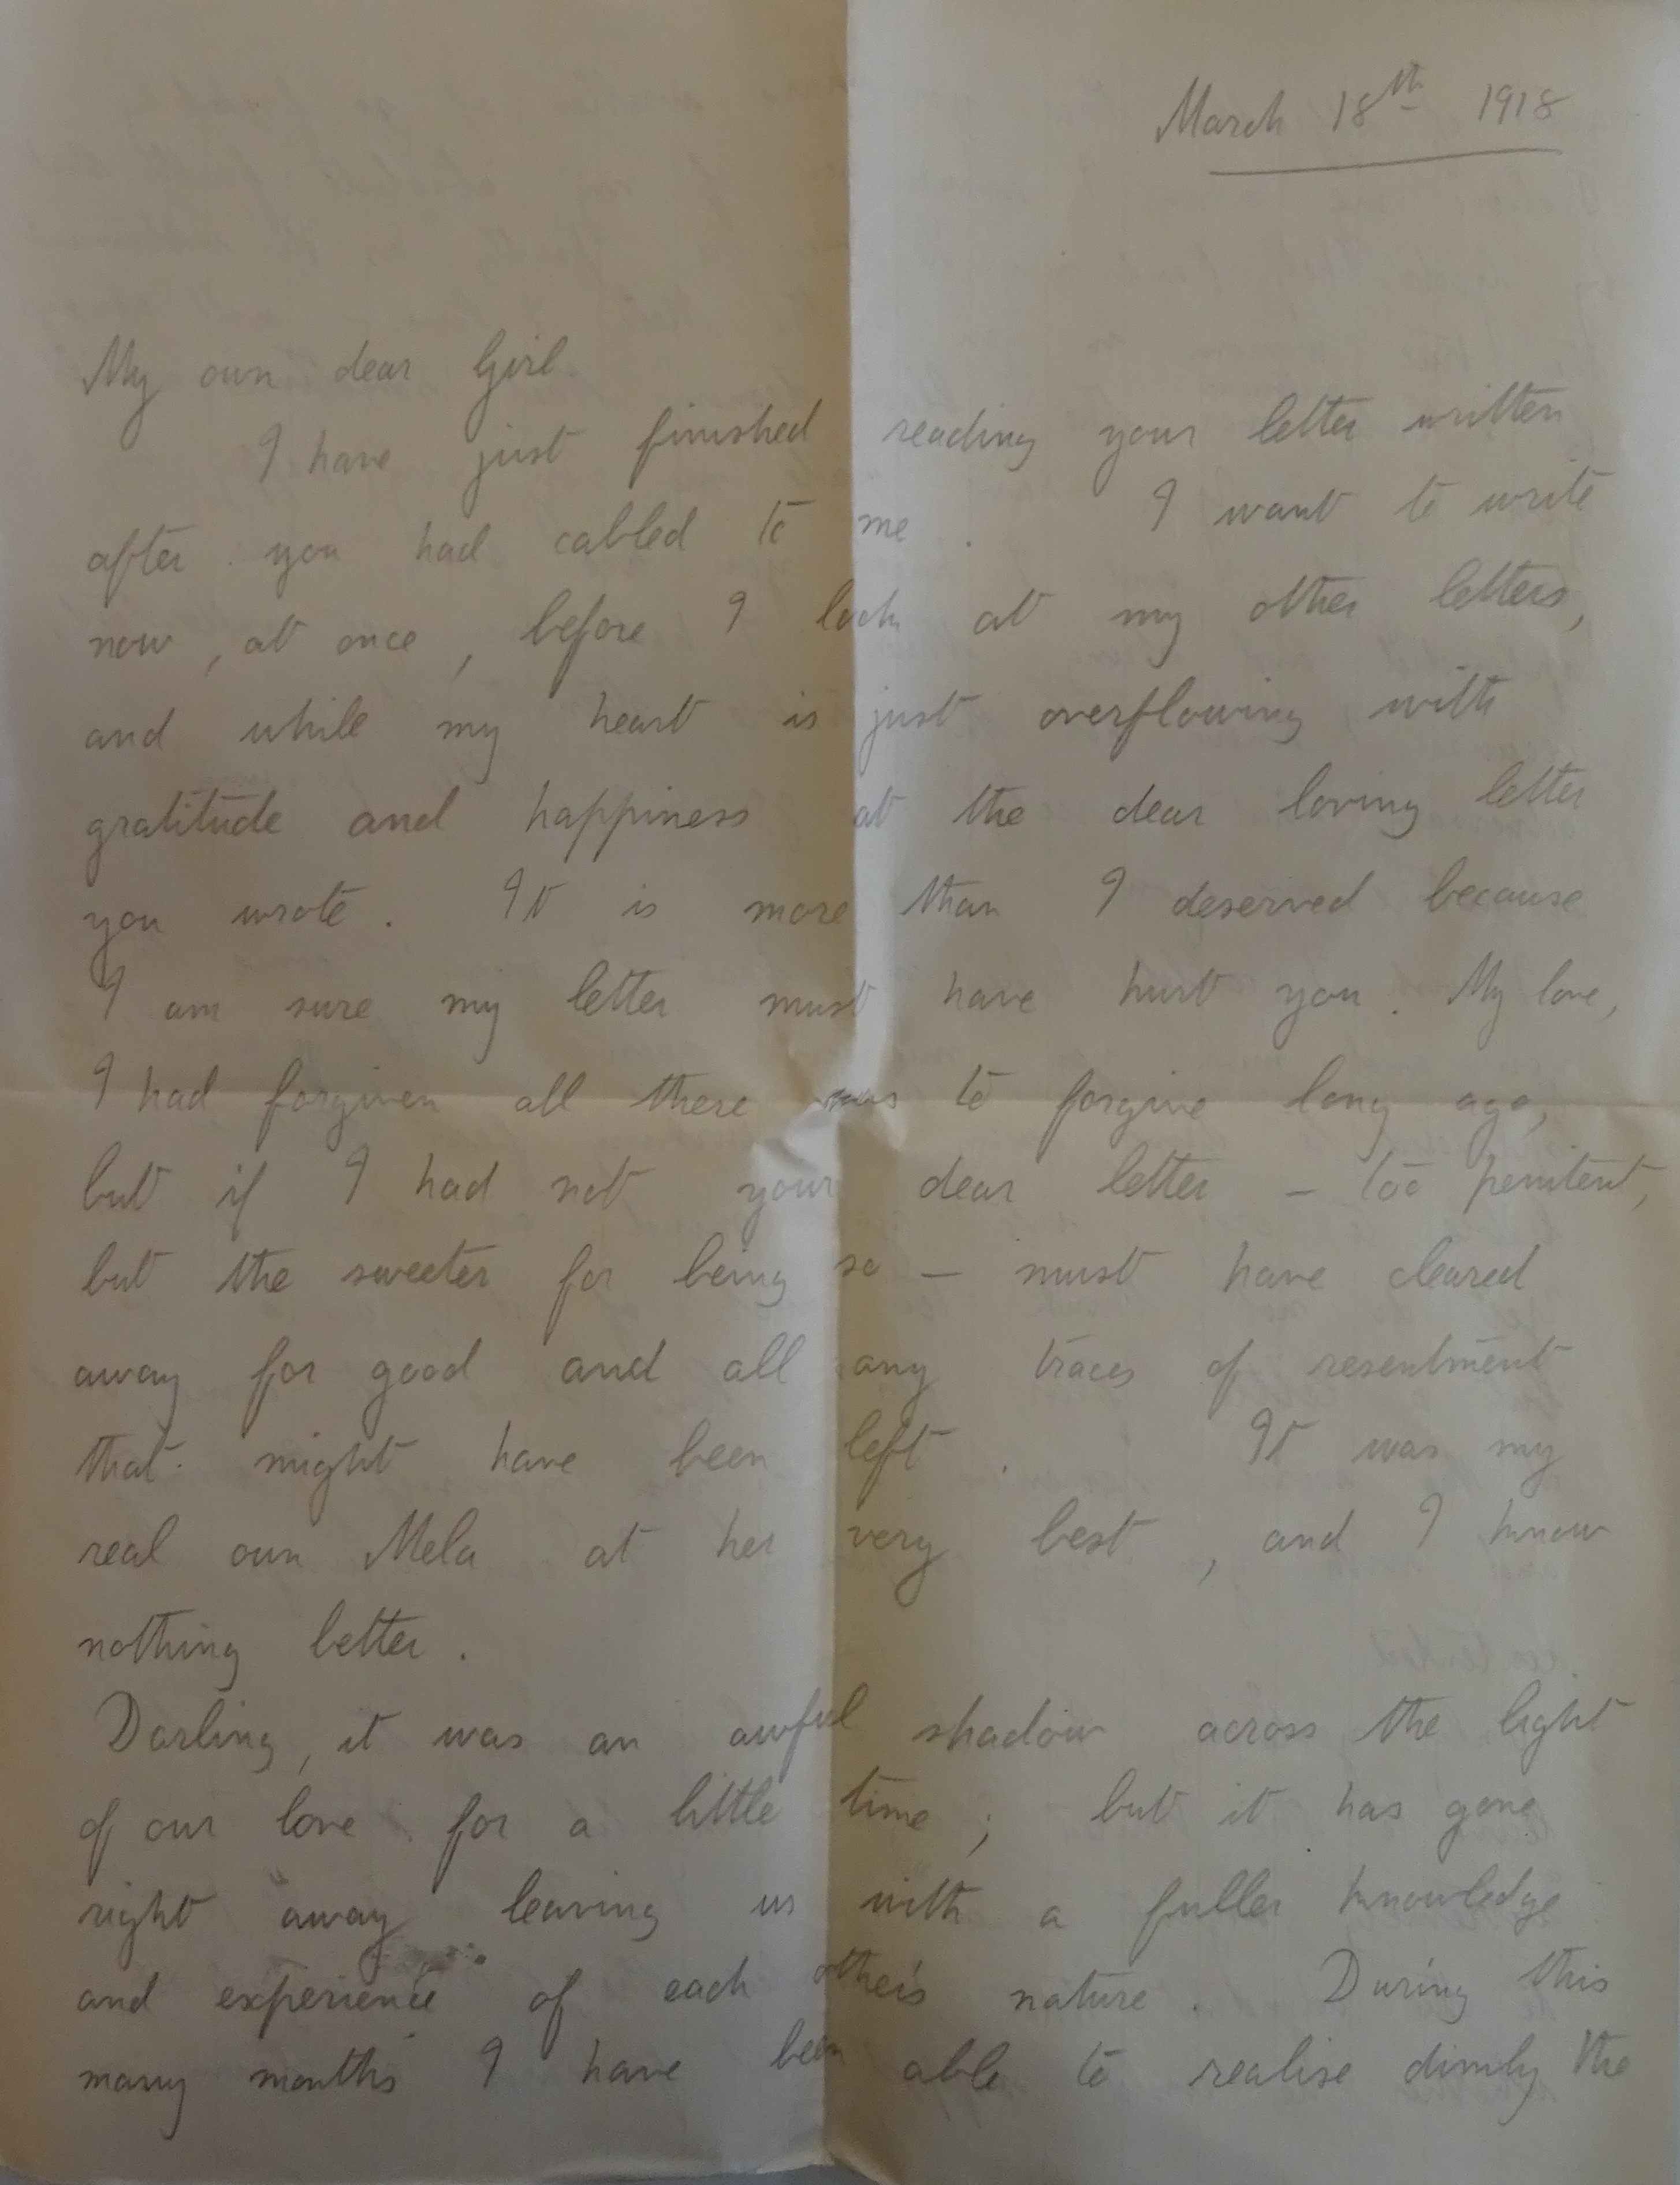 March 18th 1918
My own dear Girl.
I have just finished reading your letter written
after you had cabled to me. I want to write
now, at once, before I look at my other letters,
and while my heart is just overflowing with
gratitude and happiness at the dear loving letter
you wrote. It is more than I deserved because
I am sure my letter must have hurt you. My love,
I had forgiven all there was to forgive long ago,
but if I had not your dear letter – too penitent,
but the sweeter for being so – must have cleared
away for good and all any traces of resentment
that might have been left. It was my
real own Mela at her very best, and I know
nothing better.
Darling, it was an awful shadow across the light
of our love for a little time; but it has gone
right away leaving us with a fuller knowledge
and experience of each other's nature. During this
many months I have been able to realise dimly the